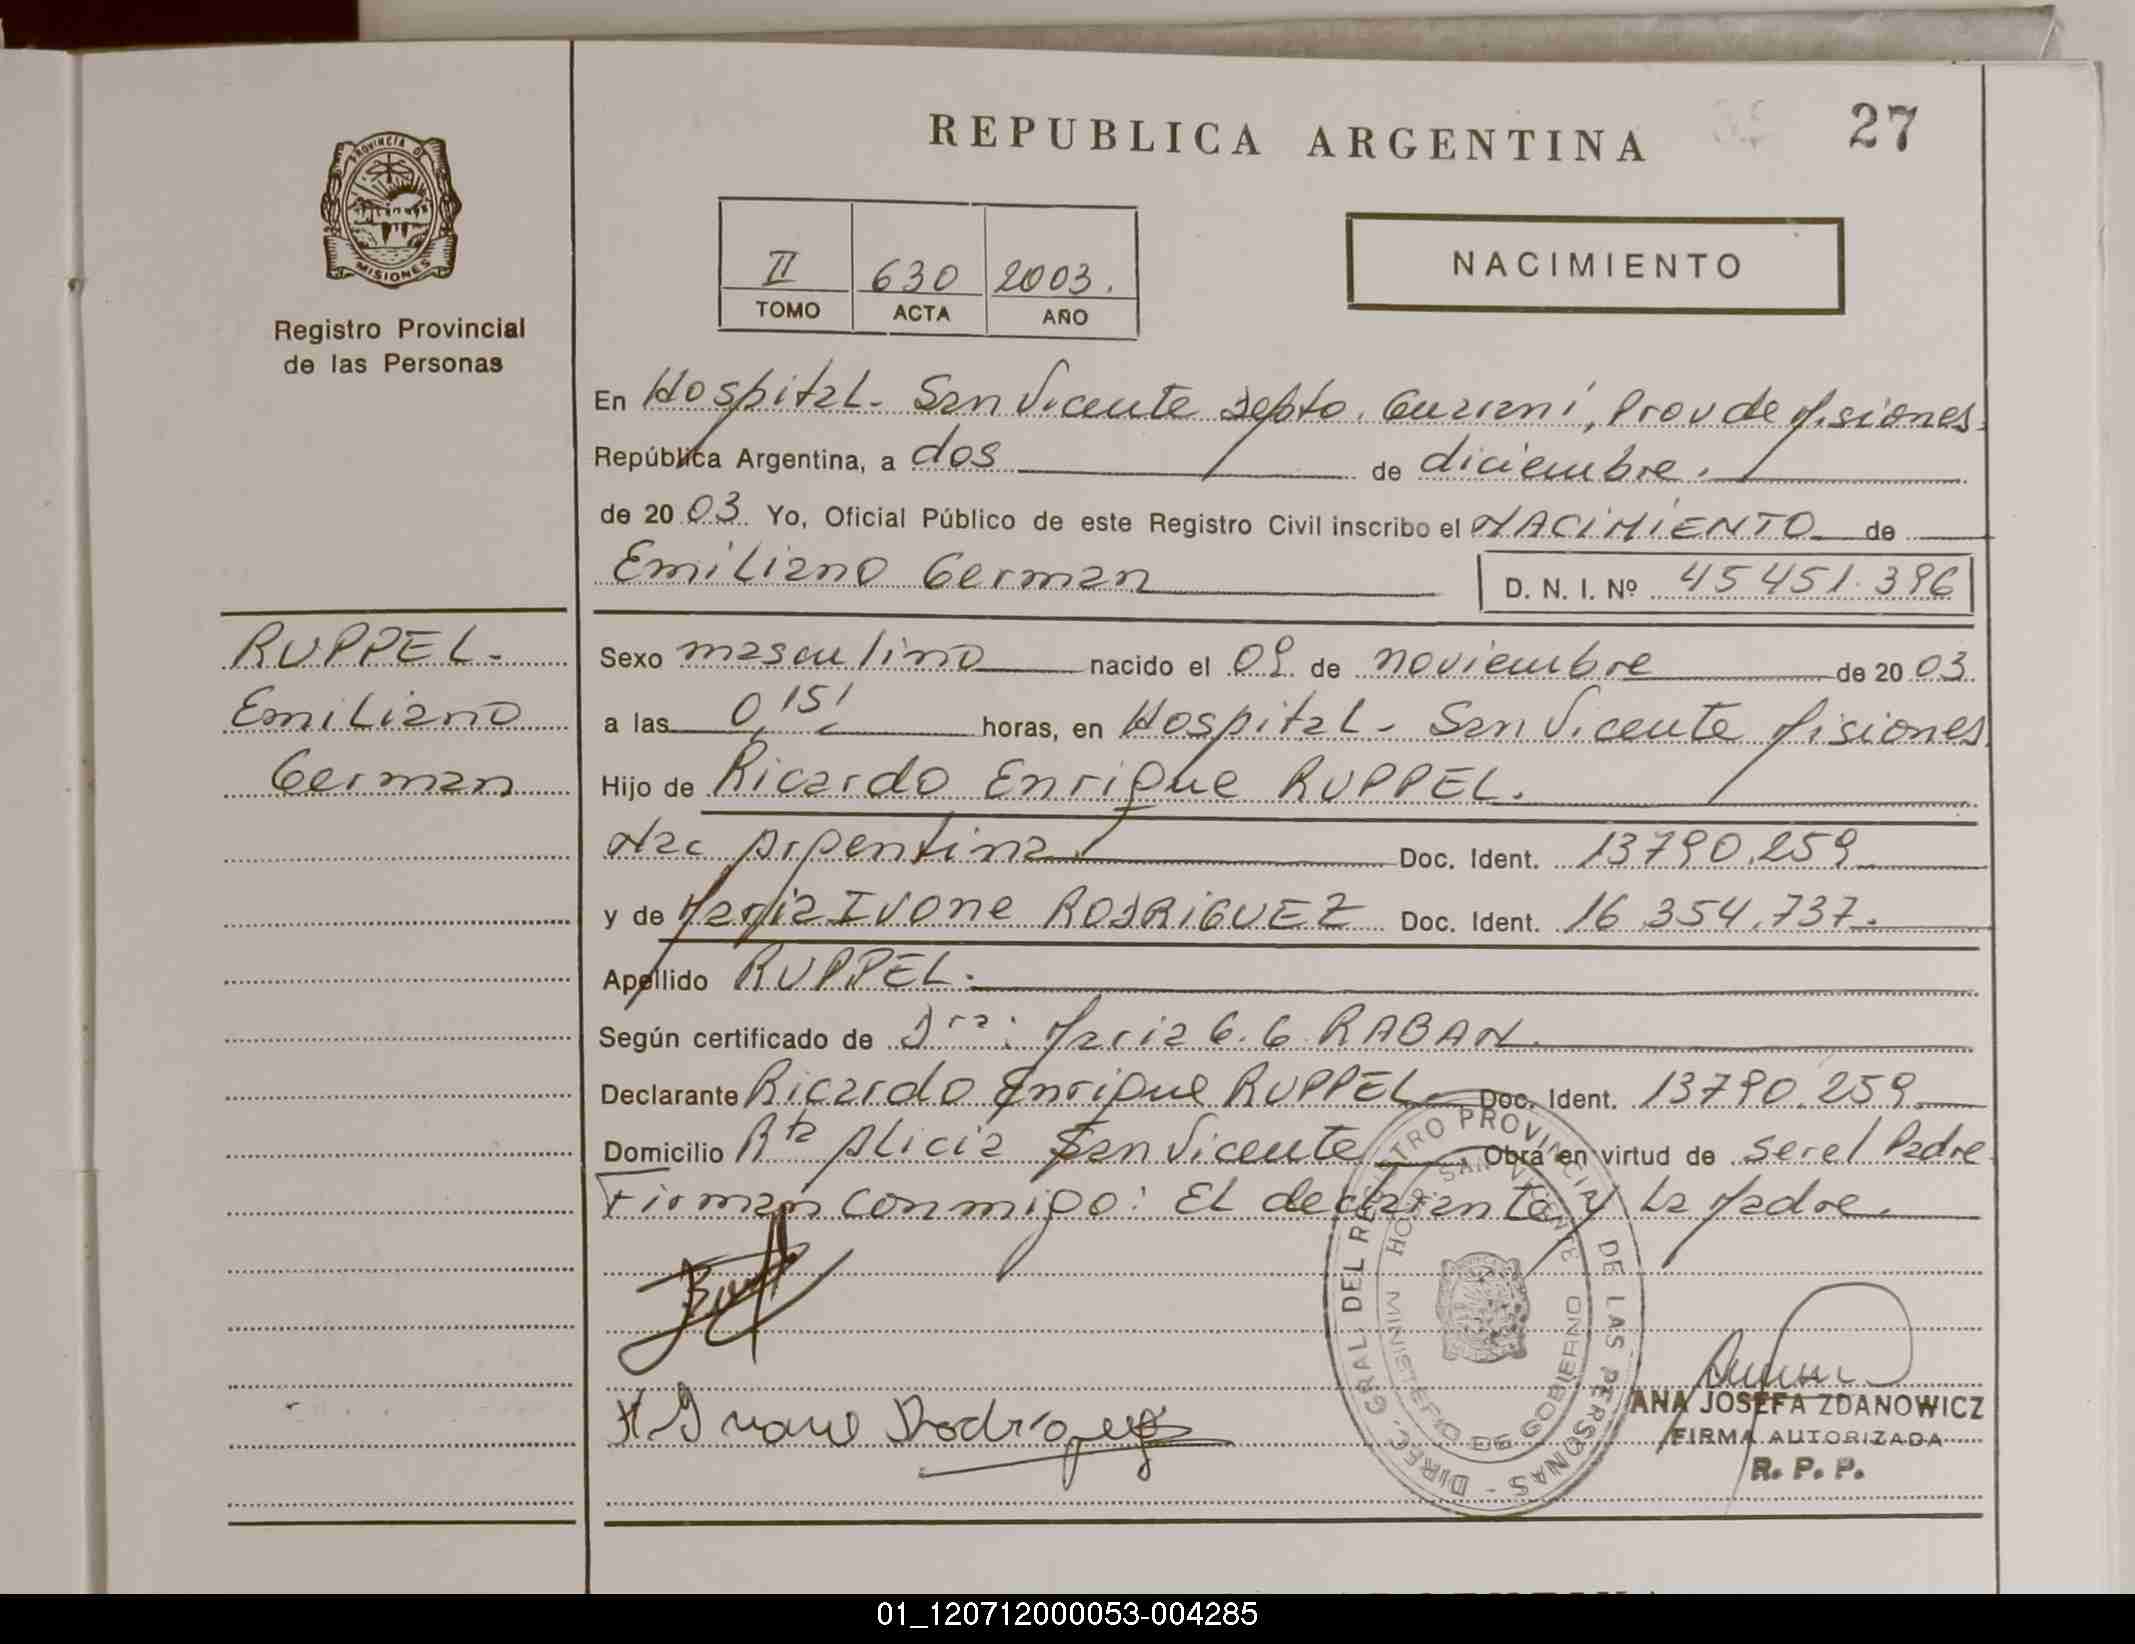 REPUBLICA ARGENTINA
27
PROVINCIA DE
MISIONES
Registro Provincial
de las Personas
II 630 2003.
TOMO ACTA AÑO
NACIMIENTO
En Hospital - San Vicente Depto. Guarani, Prov de Misiones.
República Argentina, a dos de diciembre.
de 2003. Yo, Oficial Público de este Registro Civil inscribo el NACIMIENTO de
Emiliano German D. N. I. Nº 45 451.396
RUPPEL -
Emiliano
German
Sexo masculino nacido el 09 de noviembre de 2003.
a las 0,15' horas, en Hospital - San Vicente Misiones
Hijo de Ricardo Enrique RUPPEL.
Nac Argentina. Doc. Ident. 13790.259
y de Maria IVONE RODRIGUEZ Doc. Ident. 16.354.737.
Apellido RUPPEL.
Según certificado de Dra: Maria G. G. RABAN.
Declarante Ricardo Enrique RUPPEL Doc. Ident. 13790.259.
Domicilio Rta Alicia San Vicente Obra en virtud de ser el Padre.
Firman conmigo: El declarante y La Madre.
DIREC. GRAL. DEL REGISTRO PROVINCIAL DE LAS PERSONAS -
HOSP. SAN VICENTE
MINISTERIO DE GOBIERNO
Rodríguez
ANA JOSEFA ZDANOWICZ
FIRMA AUTORIZADA
R. P. P.
01_120712000053-004285